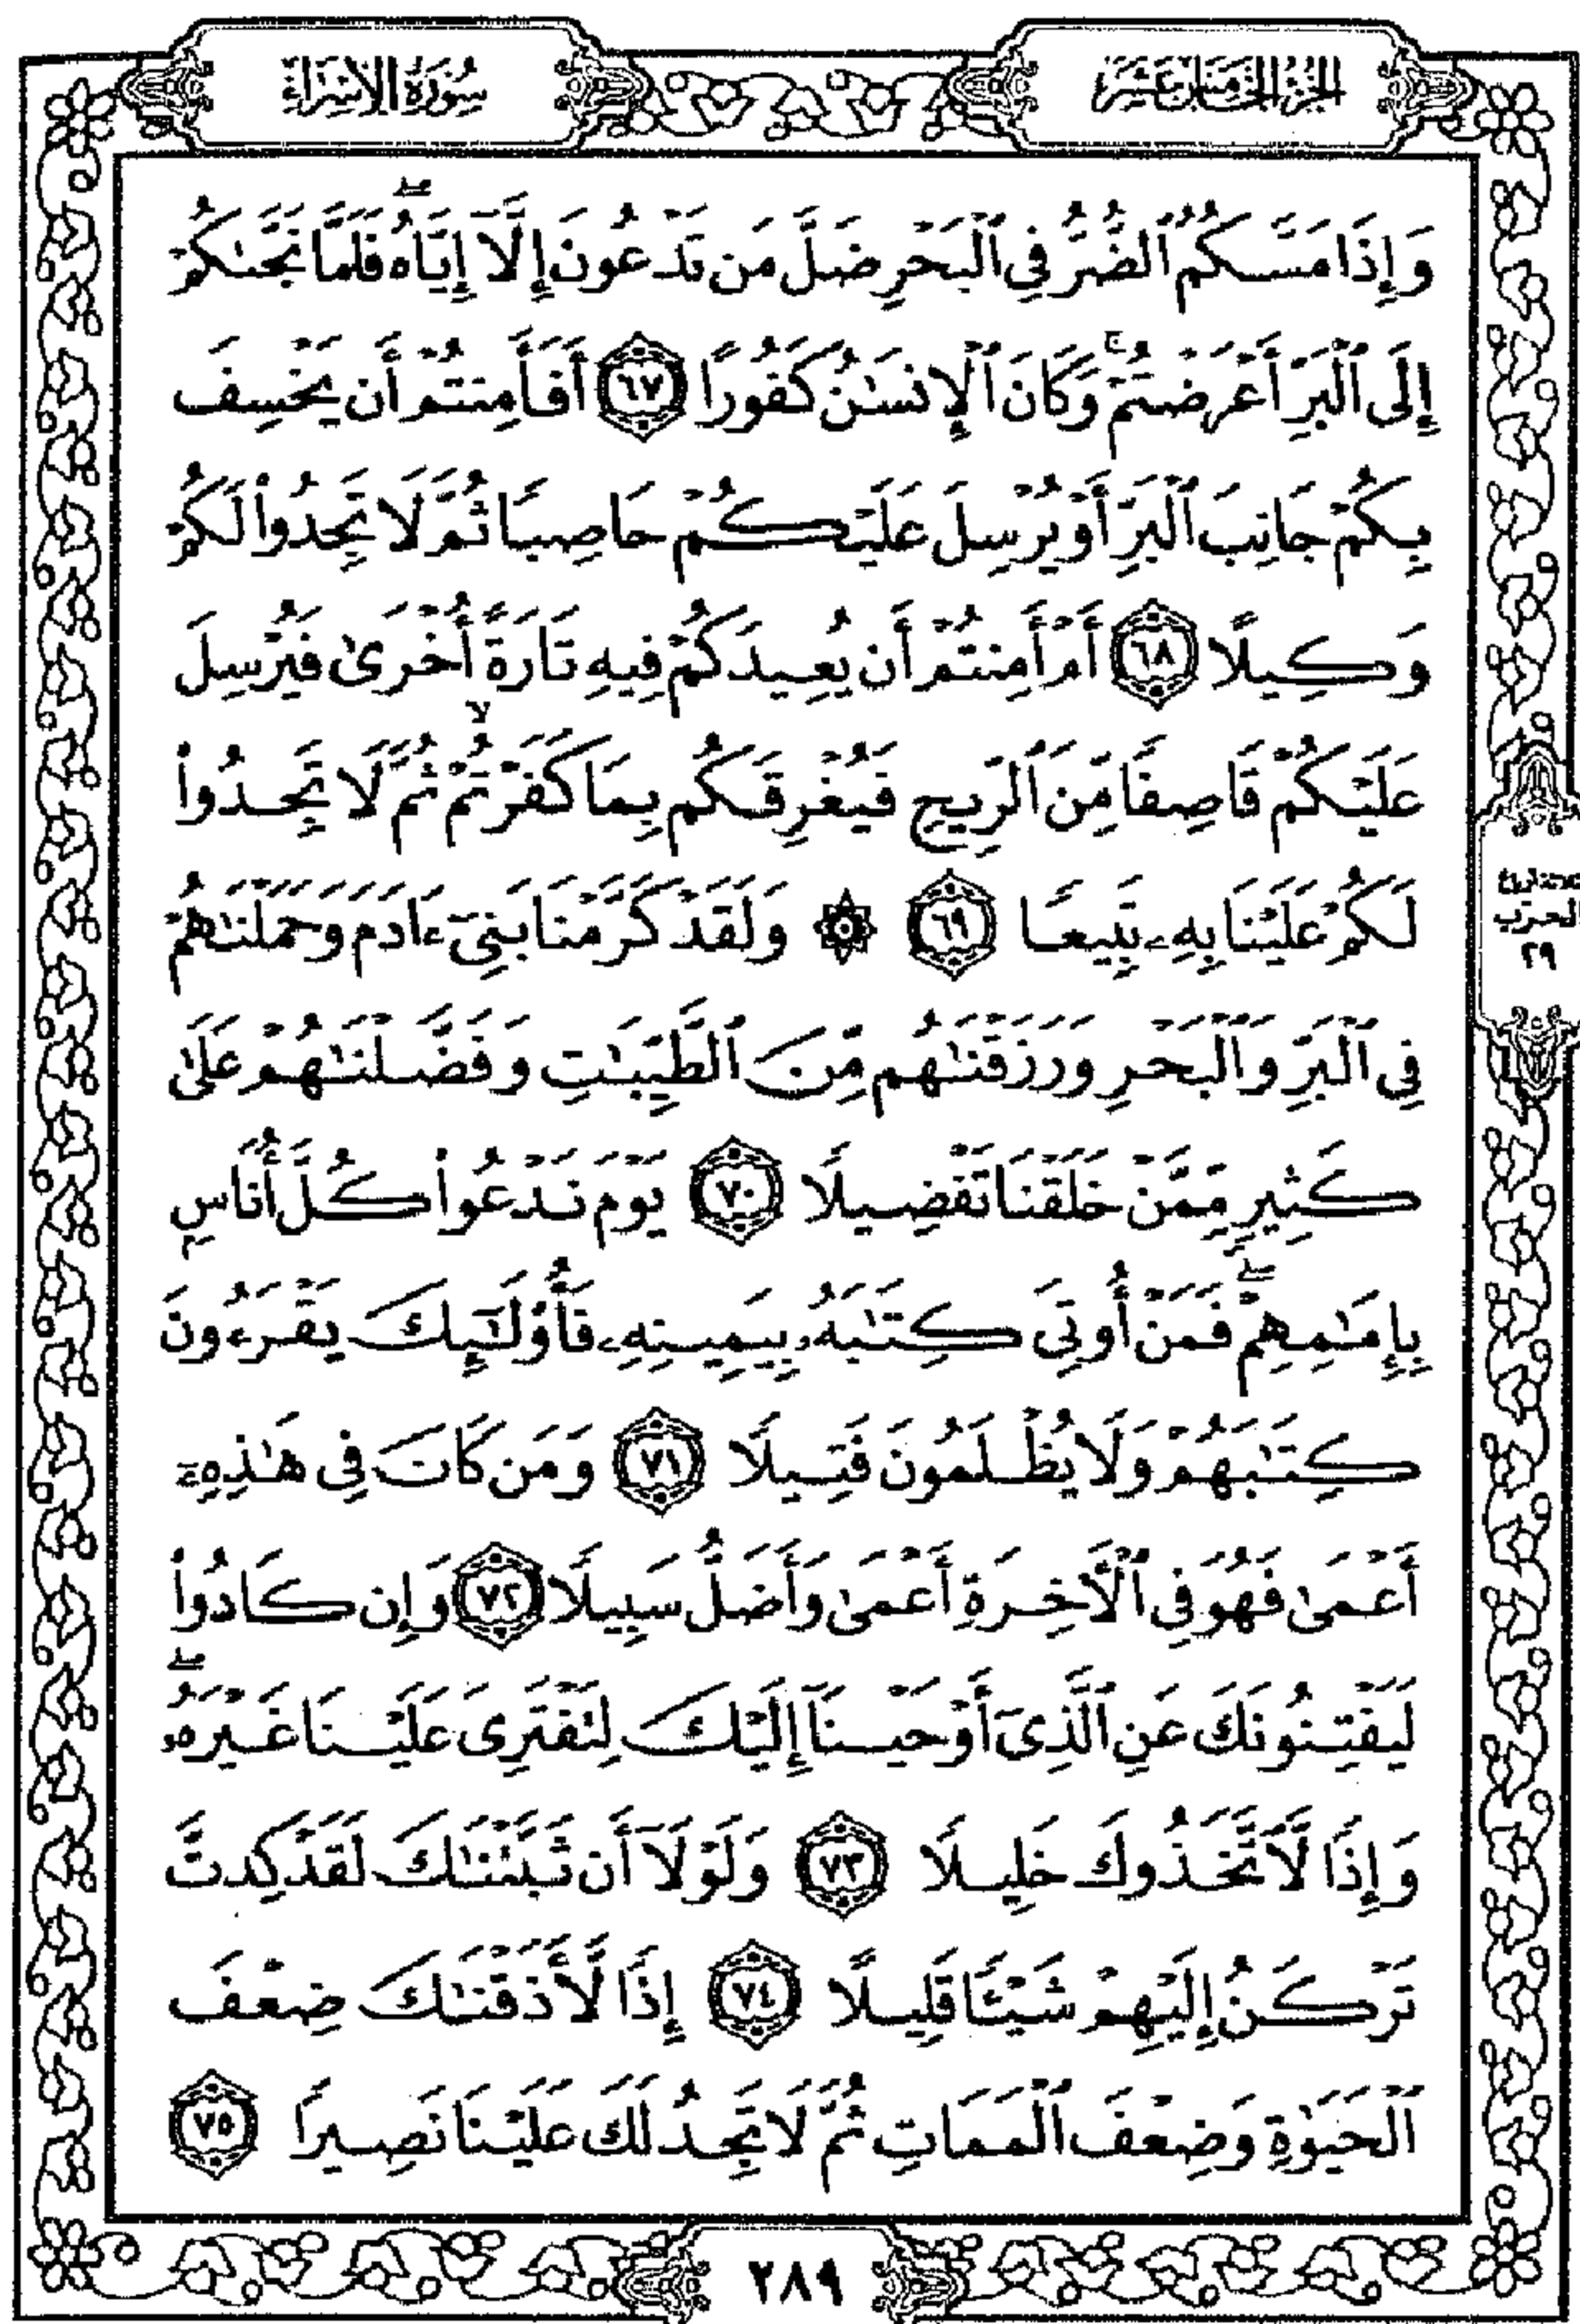 الجزء الخامس عشر
سورة الإسراء
وَإِذَا مَسَّكُمُ ٱلضُّرُّ فِي ٱلْبَحْرِ ضَلَّ مَن تَدْعُونَ إِلَّآ إِيَّاهُ ۖ فَلَمَّا نَجَّىٰكُمْ
إِلَى ٱلْبَرِّ أَعْرَضْتُمْ ۚ وَكَانَ ٱلْإِنسَٰنُ كَفُورًا ٦٧ أَفَأَمِنتُمْ أَن يَخْسِفَ
بِكُمْ جَانِبَ ٱلْبَرِّ أَوْ يُرْسِلَ عَلَيْكُمْ حَاصِبًا ثُمَّ لَا تَجِدُوا۟ لَكُمْ
وَكِيلًا ٦٨ أَمْ أَمِنتُمْ أَن يُعِيدَكُمْ فِيهِ تَارَةً أُخْرَىٰ فَيُرْسِلَ
عَلَيْكُمْ قَاصِفًا مِّنَ ٱلرِّيحِ فَيُغْرِقَكُم بِمَا كَفَرْتُمْ ۙ ثُمَّ لَا تَجِدُوا۟
لَكُمْ عَلَيْنَا بِهِۦ تَبِيعًا ٦٩ ۞ وَلَقَدْ كَرَّمْنَا بَنِىٓ ءَادَمَ وَحَمَلْنَٰهُمْ
فِي ٱلْبَرِّ وَٱلْبَحْرِ وَرَزَقْنَٰهُم مِّنَ ٱلطَّيِّبَٰتِ وَفَضَّلْنَٰهُمْ عَلَىٰ
كَثِيرٍ مِّمَّنْ خَلَقْنَا تَفْضِيلًا ٧٠ يَوْمَ نَدْعُوا۟ كُلَّ أُنَاسٍۭ
بِإِمَٰمِهِمْ ۖ فَمَنْ أُوتِىَ كِتَٰبَهُۥ بِيَمِينِهِۦ فَأُو۟لَٰٓئِكَ يَقْرَءُونَ
كِتَٰبَهُمْ وَلَا يُظْلَمُونَ فَتِيلًا ٧١ وَمَن كَانَ فِى هَٰذِهِۦٓ
أَعْمَىٰ فَهُوَ فِى ٱلْأَخِرَةِ أَعْمَىٰ وَأَضَلُّ سَبِيلًا ٧٢ وَإِن كَادُوا۟
لَيَفْتِنُونَكَ عَنِ ٱلَّذِىٓ أَوْحَيْنَآ إِلَيْكَ لِتَفْتَرِىَ عَلَيْنَا غَيْرَهُۥ ۖ
وَإِذًا لَّٱتَّخَذُوكَ خَلِيلًا ٧٣ وَلَوْلَآ أَن ثَبَّتْنَٰكَ لَقَدْ كِدتَّ
تَرْكَنُ إِلَيْهِمْ شَيْـًٔا قَلِيلًا ٧٤ إِذًا لَّأَذَقْنَٰكَ ضِعْفَ
ٱلْحَيَوٰةِ وَضِعْفَ ٱلْمَمَاتِ ثُمَّ لَا تَجِدُ لَكَ عَلَيْنَا نَصِيرًا ٧٥
الحزب
٢٩
٢٨٩